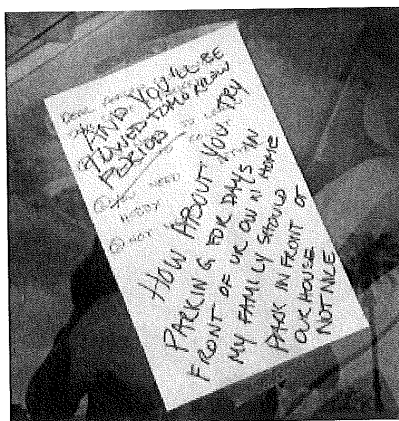 DEAR
AND YOU'LL BE
TOWED TOMORROW
PERIOD
NEED
NOT
HOW ABOUT YOU TRY
PARKING FOR DAYS IN
FRONT OF UR OWN HOME
MY FAMILY SHOULD
PARK IN FRONT OF
OUR HOUSE
NOT NICE